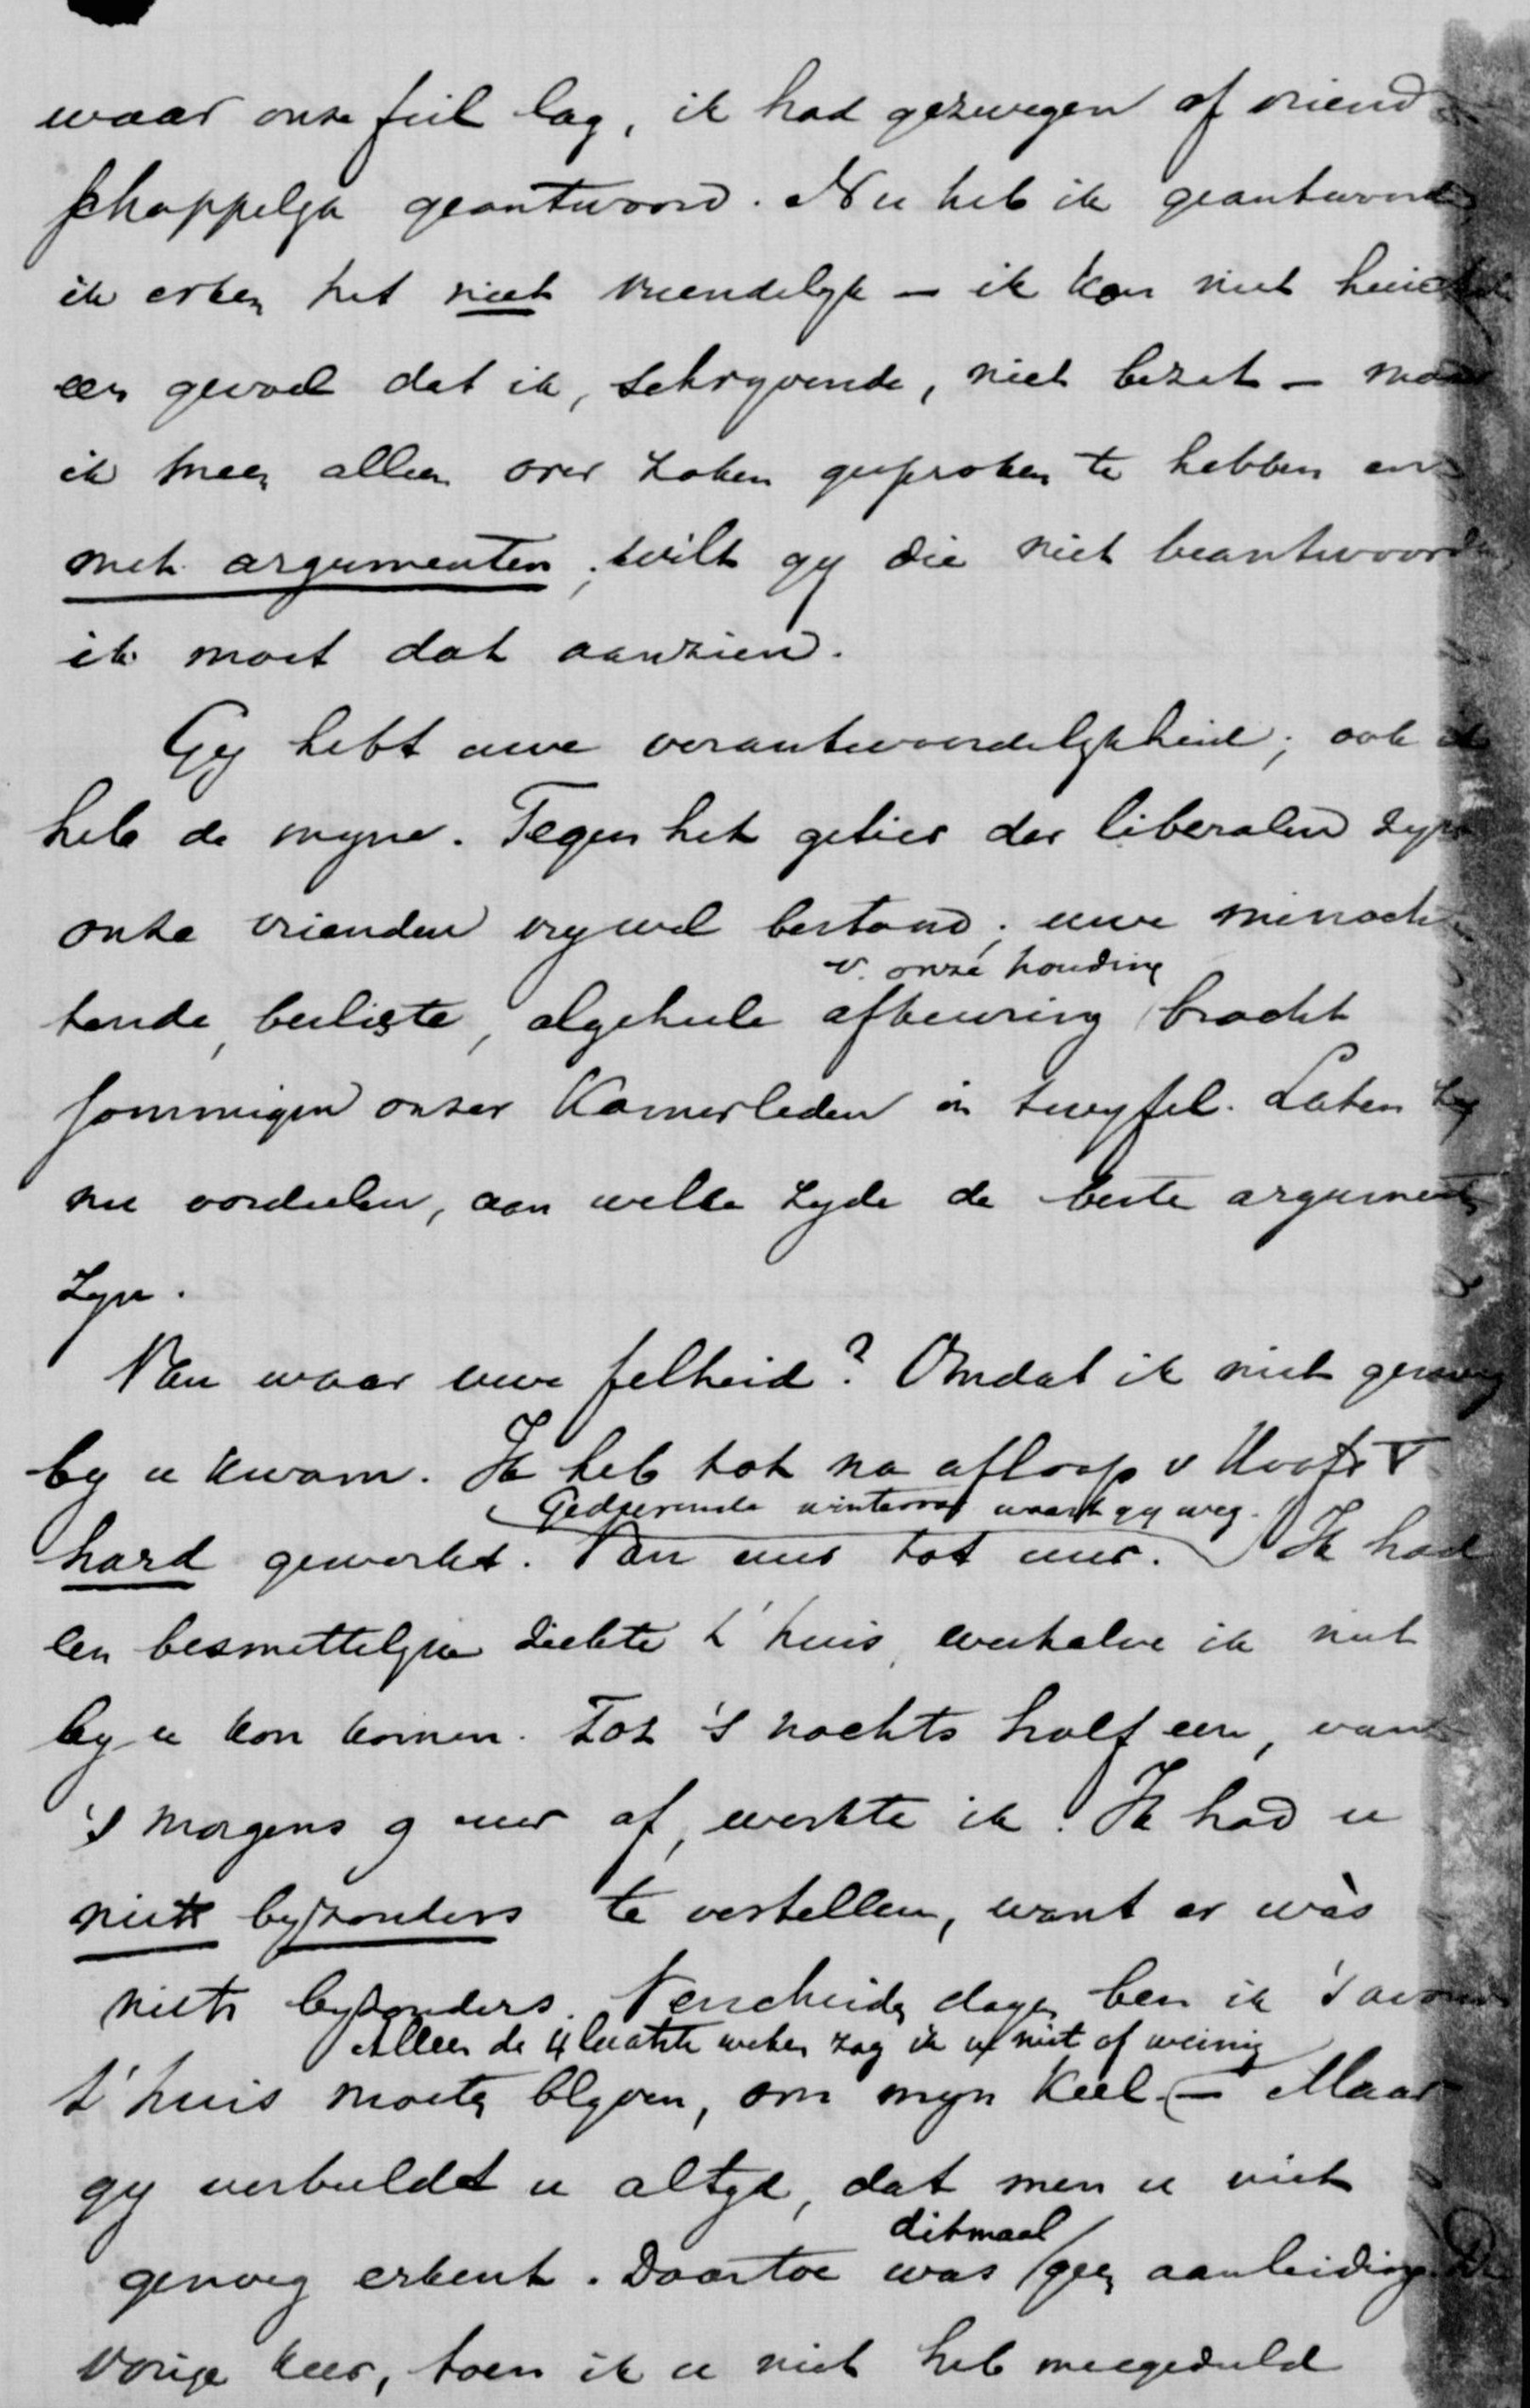 waar onze feil lag, ik had gezwegen of vriend
schappelyk geantwoord. Nu heb ik geantwoord
ik erken het niet vriendelyk — ik kan niet
een gevoel dat ik, schryvende, niet bezat — maar
ik meen alleen over zaken gesproken te hebben en
met argumenten; wilt gy die niet beantwoorden,
ik moet dat aanzien.
Gy hebt uwe verantwoordelykheid; ook ik
heb de myne. Tegen het getier der liberalen zyn
onze vrienden vrywel bestand; uwe minach
v. onze houding
tende, besliste, algeheele afkeuring bracht
sommigen onzer Kamerleden in twyfel. Laten zy
nu oordeelen, aan welke zyde de beste argumenten
zyn.
Van waar uwe felheid? Omdat ik niet genoeg
by u kwam. Ik heb tot na afloop v
Gedurende waart gy weg.
hard gewerkt. Van uur tot uur. Ik had
een besmettelyke ziekte t'huis, weshalve ik niet
by u kon komen. Tot 's nachts half een, van
's morgens 9 uur af, werkte ik. Ik had u
niets byzonders te vertellen, want er wàs
niets byzonders. Verscheiden dagen ben ik 's avonds
Alleen de 4 laatste weken zag ik u niet of weinig
t'huis moeten blyven, om myn keel. — Maar
gy verbeeldt u altyd, dat men u niet
ditmaal
genoeg erkent. Daartoe was geen aanleiding. De
vorige keer, toen ik u niet heb meegedeeld